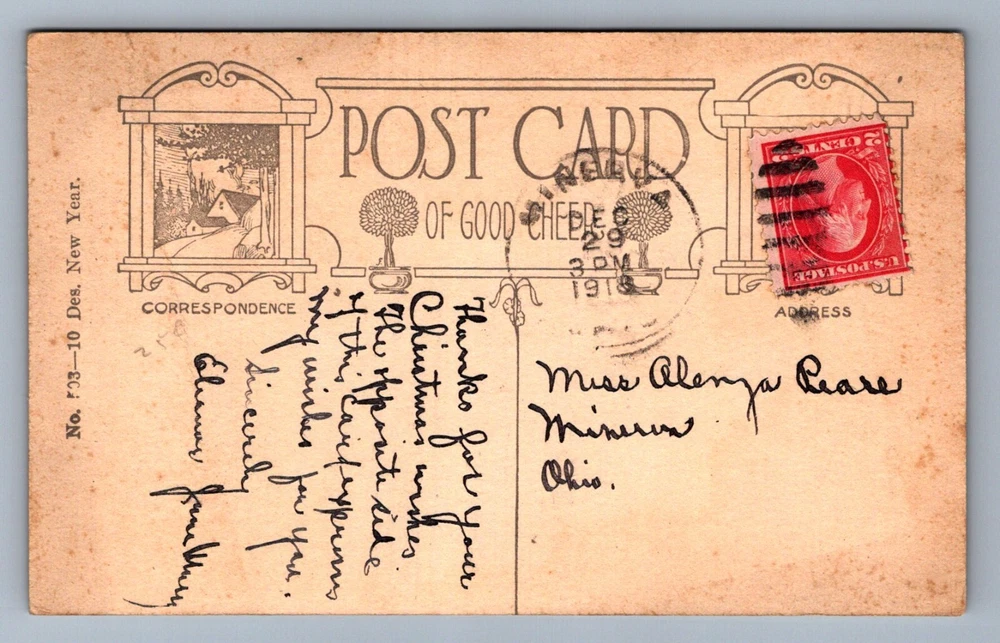 POST CARD
OF GOOD CHEER
CORRESPONDENCE
ADDRESS
No. 503—10 Des. New Year.
MINERVA
DEC
29
3 PM
1918
2 CENTS 2
U.S. POSTAGE
Thanks for your
Christmas wishes.
The opposite side
of this card expresses
my wishes for you.
Sincerely
Eleanor Jane
Miss Alenza Pearce
Minerva
Ohio.